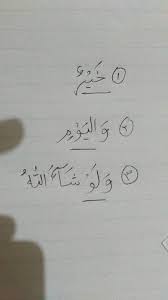 ① خَيْرٌ
② وَالْيَوْمِ
③ وَلَوْ شَآءَ اللّٰهُ